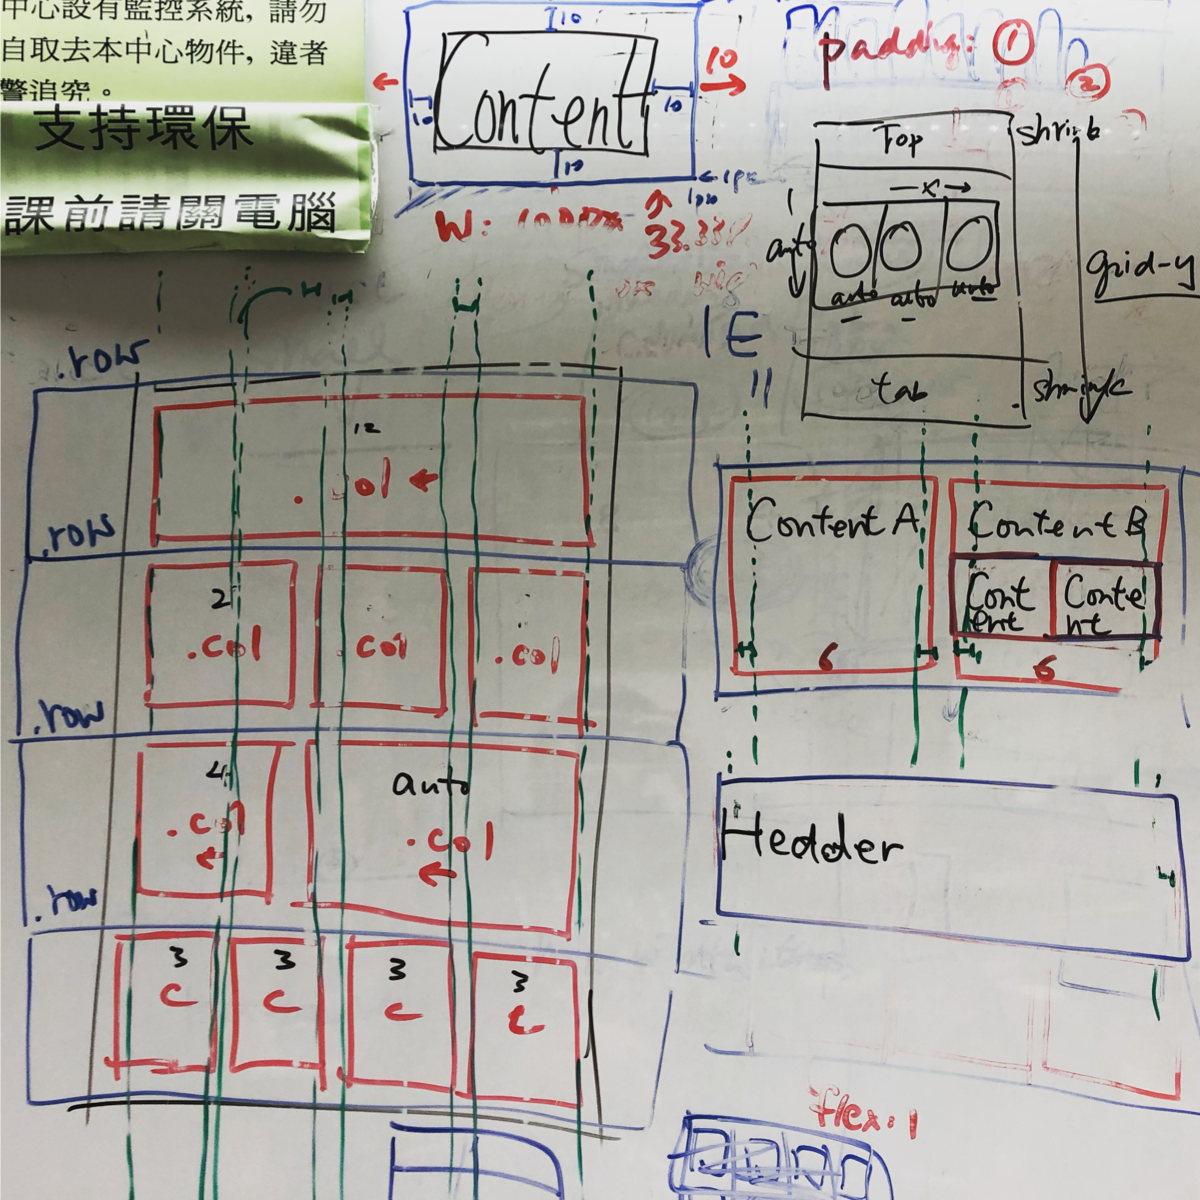 中心設有監控系統, 請勿
自取去本中心物件, 違者
警追究。
支持環保
課前請關電腦
10
Content
10
10
10
10
padding: ①
②
W:
33.33%
Top
shrink
x
auto
auto
auto
auto
grid-y
tab
shrink
IE
11
.row
12
.col
.row
2
.col
.col
.col
.row
4
.col
auto
.col
.row
3
C
3
C
3
C
3
C
Content A
Content B
Cont
ent
Conte
nt
6
6
Hedder
flex:1